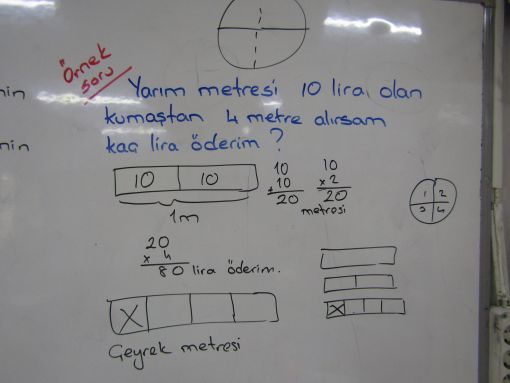 Örnek
soru
Yarım metresi 10 lira olan
kumaştan 4 metre alırsam
kaç lira öderim?
10 10
1m
10
+10
20
10
x2
20
metresi
1 2
3 4
20
x 4
80 lira öderim.
X
X
Çeyrek metresi